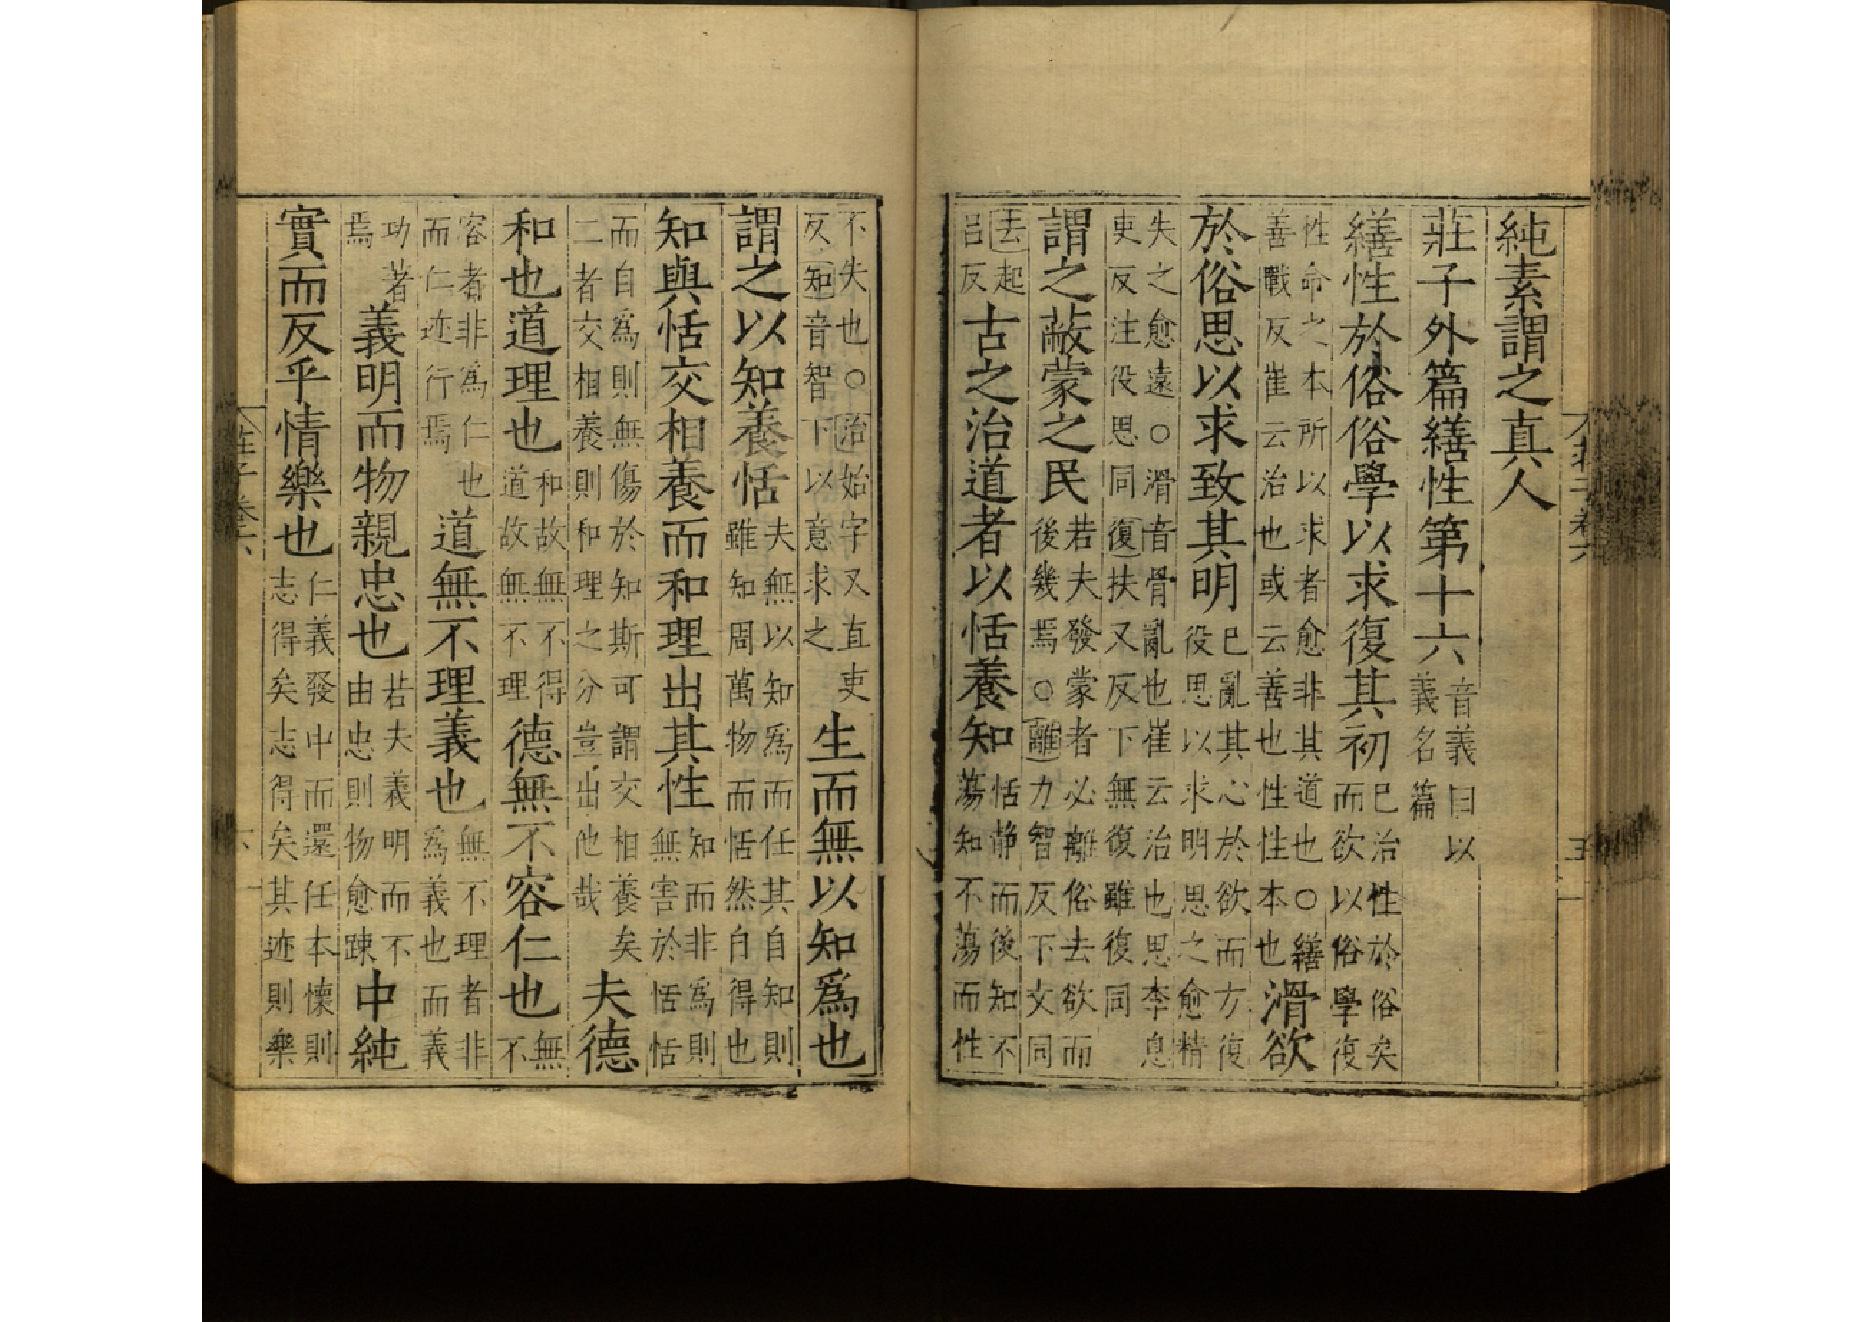 純素謂之真人
莊子外篇繕性第十六音義曰以義名篇
繕性於俗俗學以求復其初已治性於俗矣而欲以俗學復
性命之本所以求者愈非其道也○繕善戰反崔云治也或云善也性性本也滑欲
於俗思以求致其明已亂其心於欲而方復役思以求明思之愈精
失之愈遠○滑音骨亂也崔云治也思李息吏反注役思同復扶又反下無復雖復同
謂之蔽蒙之民若夫發蒙者必離俗去欲而後幾焉○離力智反下文同
去起呂反古之治道者以恬養知恬静而後知不蕩知不蕩而性
不失也○治始字又直吏反知音智下以意求之生而無以知爲也
謂之以知養恬夫無以知爲而任其自知則雖知周萬物而恬然自得也
知與恬交相養而和理出其性知而非爲則無害於恬恬
而自爲則無傷於知斯可謂交相養矣二者交相養則和理之分豈出他哉夫德
和也道理也和故無不得道故無不理德無不容仁也無不
容者非爲仁也而仁迹行焉道無不理義也無不理者非爲義也而義
功著焉義明而物親忠也若夫義明而不由忠則物愈疎中純
實而反乎情樂也仁義發中而還任本懷則志得矣志得矣其迹則樂
莊子卷六